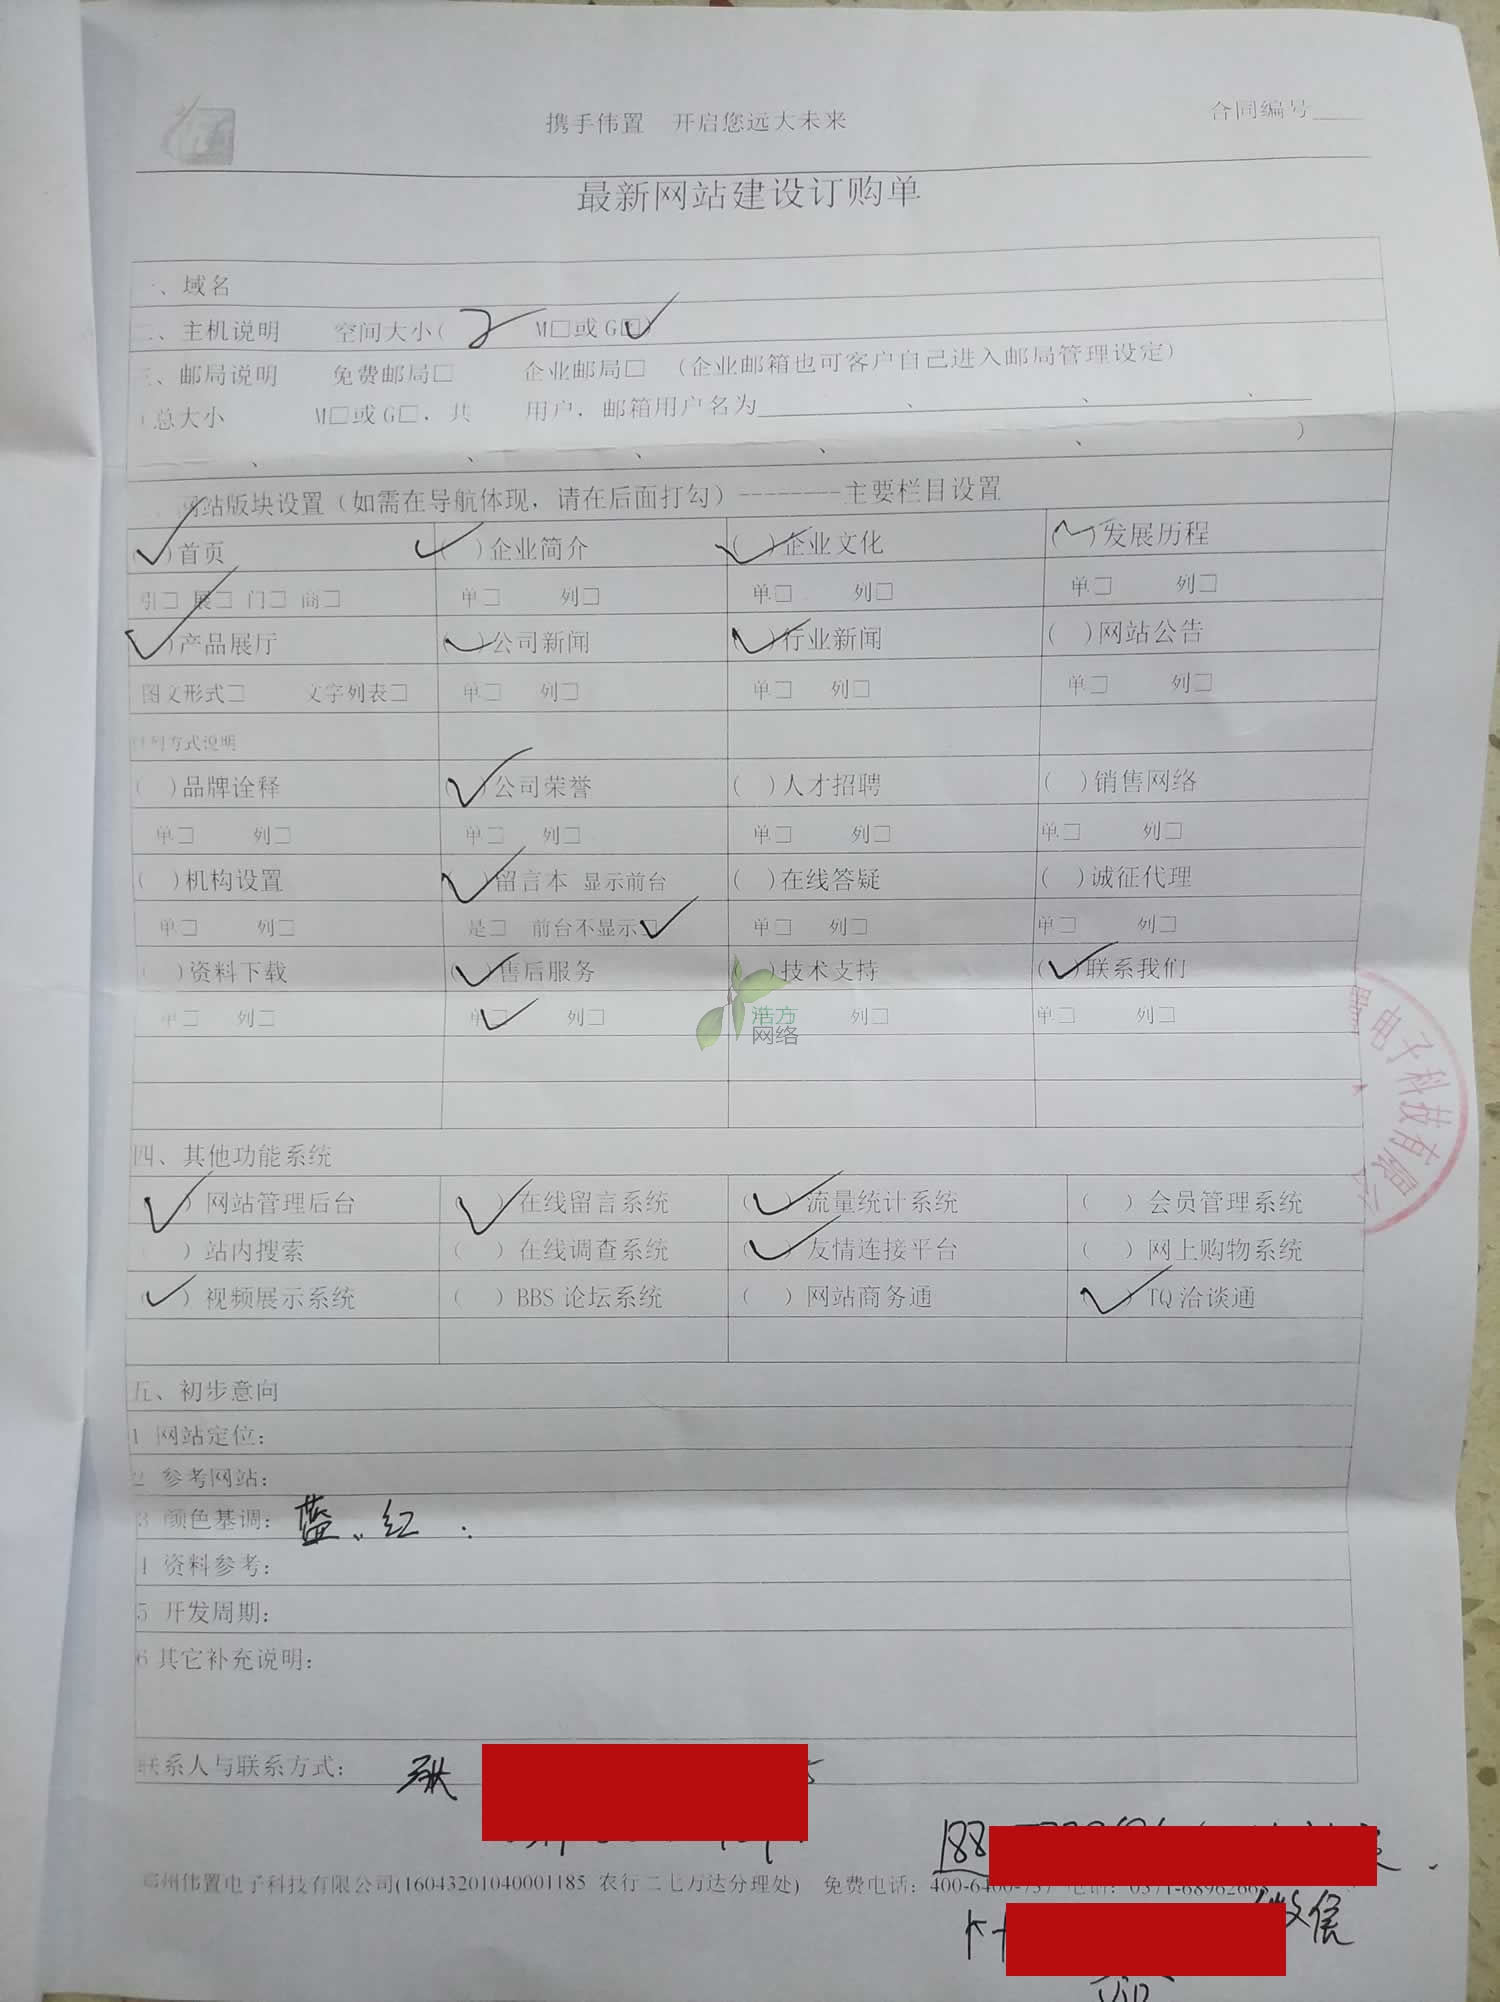 携手伟置 开启您远大未来 合同编号____
最新网站建设订购单
一、域名
二、主机说明 空间大小( 2 M□或G☑)
三、邮局说明 免费邮局□ 企业邮局□ (企业邮箱也可客户自己进入邮局管理设定)
(总大小 M□或G□，共 用户，邮箱用户名为______、______、______、______
______、______、______、______、______)
网站版块设置（如需在导航体现，请在后面打勾）--------主要栏目设置
(✓)首页 (✓)企业简介 (✓)企业文化 (✓)发展历程
引□ 展□ 门□ 商□ 单□ 列□ 单□ 列□ 单□ 列□
(✓)产品展厅 (✓)公司新闻 (✓)行业新闻 ( )网站公告
图文形式□ 文字列表□ 单□ 列□ 单□ 列□ 单□ 列□
方式说明
( )品牌诠释 (✓)公司荣誉 ( )人才招聘 ( )销售网络
单□ 列□ 单□ 列□ 单□ 列□ 单□ 列□
( )机构设置 (✓)留言本 显示前台 ( )在线答疑 ( )诚征代理
单□ 列□ 是□ 前台不显示☑ 单□ 列□ 单□ 列□
( )资料下载 (✓)售后服务 ( )技术支持 (✓)联系我们
单□ 列□ 单☑ 列□ 列□ 单□ 列□
浩方
网络
置电子科技有限公
四、其他功能系统
(✓)网站管理后台 (✓)在线留言系统 (✓)流量统计系统 ( )会员管理系统
( )站内搜索 ( )在线调查系统 (✓)友情连接平台 ( )网上购物系统
(✓)视频展示系统 ( )BBS 论坛系统 ( )网站商务通 (✓)TQ 洽谈通
五、初步意向
1 网站定位：
2 参考网站：
3 颜色基调：蓝、红.
4 资料参考：
5 开发周期：
6 其它补充说明：
联系人与联系方式：耿
188
郑州伟置电子科技有限公司(16043201040001185 农行二七万达分理处) 免费电话：400-6400-737 电话：0371-68962663
微信